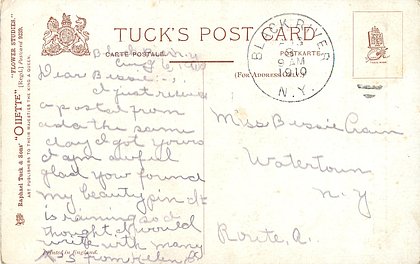 TUCK'S POST CARD
CARTE POSTALE
POSTKARTE
(FOR ADDRESS ONLY)
"FLOWER STUDIES."
(Regd.) Postcard
Raphael Tuck & Sons' "OILETTE"
ART PUBLISHERS TO THEIR MAJESTIES THE KING & QUEEN.
Printed in England.
BLACK RIVER
9 AM
1910
N.Y.
Black River N.Y.
Aug
Dear Bessie:-
I just received
a postal from
ada the same
day I got yours
I am awful
glad your found
my beauty pin It
is raining so I
thought I would
write with many
from Helen
Miss Bessie Crain
Watertown
N.Y
Route, A.